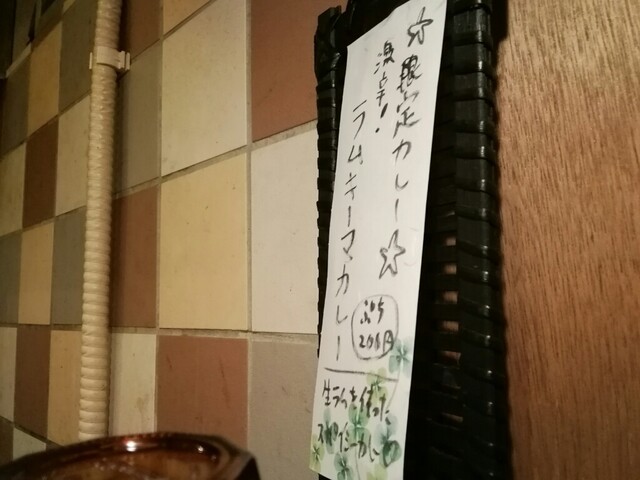 ☆限定カレー☆
激辛！
ラムキーマカレー
ぷち
200円
生ラムを使った
スパイシーカレー